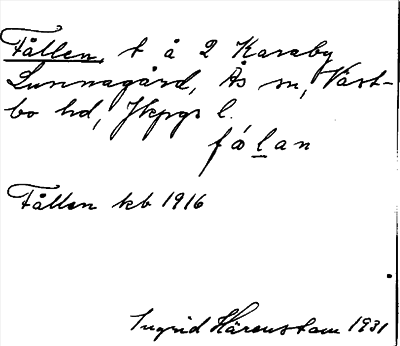 Fållen, t å 2 Karaby
Lunnagård, Ås sn, Väst-
bo hd, Jkpgs l.
fålan
Fållen kb 1916
Ingrid Härenstam 1931